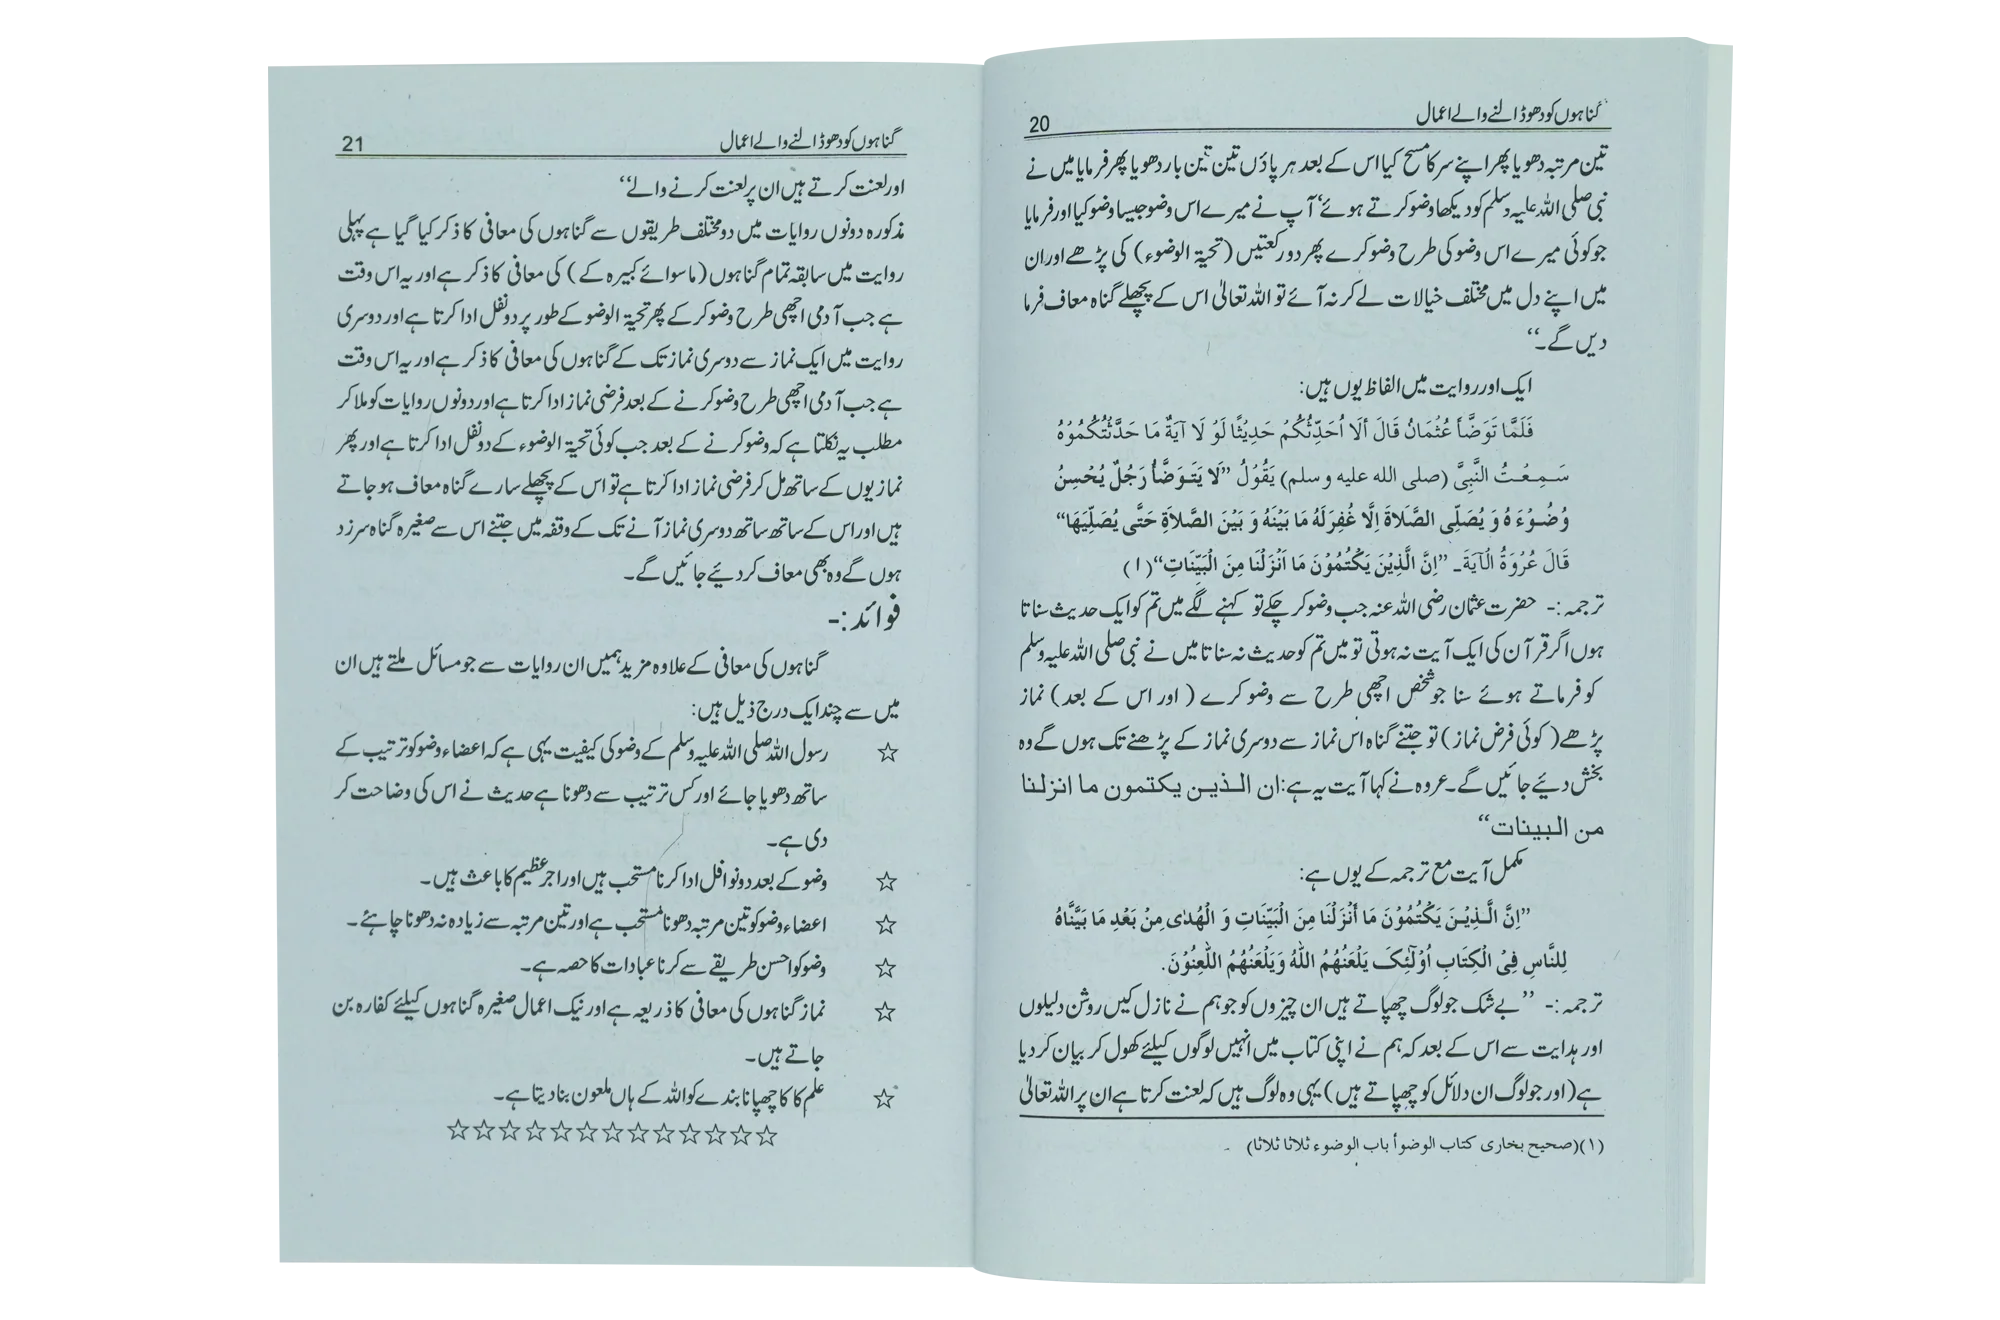 گناہوں کو دھو ڈالنے والے اعمال 20
تین مرتبہ دھویا پھر اپنے سر کا مسح کیا اس کے بعد ہر پاؤں تین تین بار دھویا پھر فرمایا میں نے
نبی صلی اللہ علیہ وسلم کو دیکھا وضو کرتے ہوئے‘ آپ نے میرے اس وضو جیسا وضو کیا اور فرمایا
جو کوئی میرے اس وضو کی طرح وضو کرے پھر دو رکعتیں (تحیۃ الوضوء) کی پڑھے اور ان
میں اپنے دل میں مختلف خیالات لے کر نہ آئے تو اللہ تعالیٰ اس کے پچھلے گناہ معاف فرما
دیں گے۔‘‘
ایک اور روایت میں الفاظ یوں ہیں:
فَلَمَّا تَوَضَّأَ عُثْمَانُ قَالَ ألَا اُحَدِّثُكُمْ حَدِيْثًا لَوْ لَا آيَةٌ مَا حَدَّثْتُكُمُوْهُ
سَمِعْتُ النَّبِيَّ (صلى الله عليه وسلم) يَقُوْلُ ’’لَا يَتَوَضَّأُ رَجُلٌ يُحْسِنُ
وُضُوْءَهُ وَ يُصَلِّى الصَّلَاةَ اِلَّا غُفِرَلَهُ مَا بَيْنَهُ وَ بَيْنَ الصَّلَاةِ حَتَّى يُصَلِّيَهَا‘‘
قَالَ عُرْوَةُ الْآيَةَ۔ ’’اِنَّ الَّذِيْنَ يَكْتُمُوْنَ مَا اَنْزَلْنَا مِنَ الْبَيِّنَاتِ‘‘(۱)
ترجمہ:- حضرت عثمان رضی اللہ عنہ جب وضو کر چکے تو کہنے لگے میں تم کو ایک حدیث سناتا
ہوں اگر قرآن کی ایک آیت نہ ہوتی تو میں تم کو حدیث نہ سناتا میں نے نبی صلی اللہ علیہ وسلم
کو فرماتے ہوئے سنا جو شخص اچھی طرح سے وضو کرے (اور اس کے بعد) نماز
پڑھے (کوئی فرض نماز) تو جتنے گناہ اس نماز سے دوسری نماز کے پڑھنے تک ہوں گے وہ
بخش دیئے جائیں گے۔ عروہ نے کہا آیت یہ ہے: ان الذين يكتمون ما انزلنا
من البينات‘‘
مکمل آیت مع ترجمہ کے یوں ہے:
’’اِنَّ الَّذِيْنَ يَكْتُمُوْنَ مَا أَنْزَلْنَا مِنَ الْبَيِّنَاتِ وَ الْهُدٰى مِنْ بَعْدِ مَا بَيَّنَّاهُ
لِلنَّاسِ فِى الْكِتَابِ اُوْلٰٓئِكَ يَلْعَنُهُمُ اللّٰهُ وَيَلْعَنُهُمُ اللّٰعِنُوْنَ.
ترجمہ:- ’’بے شک جو لوگ چھپاتے ہیں ان چیزوں کو جو ہم نے نازل کیں روشن دلیلوں
اور ہدایت سے اس کے بعد کہ ہم نے اپنی کتاب میں انہیں لوگوں کیلئے کھول کر بیان کر دیا
ہے (اور جو لوگ ان دلائل کو چھپاتے ہیں) یہی وہ لوگ ہیں کہ لعنت کرتا ہے ان پر اللہ تعالیٰ
(۱)(صحیح بخاری کتاب الوضوأ باب الوضوء ثلاثا ثلاثا)
گناہوں کو دھو ڈالنے والے اعمال 21
اور لعنت کرتے ہیں ان پر لعنت کرنے والے‘‘
مذکورہ دونوں روایات میں دو مختلف طریقوں سے گناہوں کی معافی کا ذکر کیا گیا ہے پہلی
روایت میں سابقہ تمام گناہوں (ماسوائے کبیرہ کے) کی معافی کا ذکر ہے اور یہ اس وقت
ہے جب آدمی اچھی طرح وضو کر کے پھر تحیۃ الوضو کے طور پر دو نفل ادا کرتا ہے اور دوسری
روایت میں ایک نماز سے دوسری نماز تک کے گناہوں کی معافی کا ذکر ہے اور یہ اس وقت
ہے جب آدمی اچھی طرح وضو کرنے کے بعد فرضی نماز ادا کرتا ہے اور دونوں روایات کو ملا کر
مطلب یہ نکلتا ہے کہ وضو کرنے کے بعد جب کوئی تحیۃ الوضوء کے دو نفل ادا کرتا ہے اور پھر
نمازیوں کے ساتھ مل کر فرضی نماز ادا کرتا ہے تو اس کے پچھلے سارے گناہ معاف ہو جاتے
ہیں اور اس کے ساتھ ساتھ دوسری نماز آنے تک کے وقفہ میں جتنے اس سے صغیرہ گناہ سرزد
ہوں گے وہ بھی معاف کر دیئے جائیں گے۔
فوائد:-
گناہوں کی معافی کے علاوہ مزید ہمیں ان روایات سے جو مسائل ملتے ہیں ان
میں سے چند ایک درج ذیل ہیں:
☆ رسول اللہ صلی اللہ علیہ وسلم کے وضو کی کیفیت یہی ہے کہ اعضاء وضو کو ترتیب کے
ساتھ دھویا جائے اور کس ترتیب سے دھونا ہے حدیث نے اس کی وضاحت کر
دی ہے۔
☆ وضو کے بعد دو نوافل ادا کرنا مستحب ہیں اور اجر عظیم کا باعث ہیں۔
☆ اعضاء وضو کو تین مرتبہ دھونا مستحب ہے اور تین مرتبہ سے زیادہ نہ دھونا چاہئے۔
☆ وضو کو احسن طریقے سے کرنا عبادات کا حصہ ہے۔
☆ نماز گناہوں کی معافی کا ذریعہ ہے اور نیک اعمال صغیرہ گناہوں کیلئے کفارہ بن
جاتے ہیں۔
☆ علم کا کا چھپانا بندے کو اللہ کے ہاں ملعون بنا دیتا ہے۔
☆☆☆☆☆☆☆☆☆☆☆☆☆